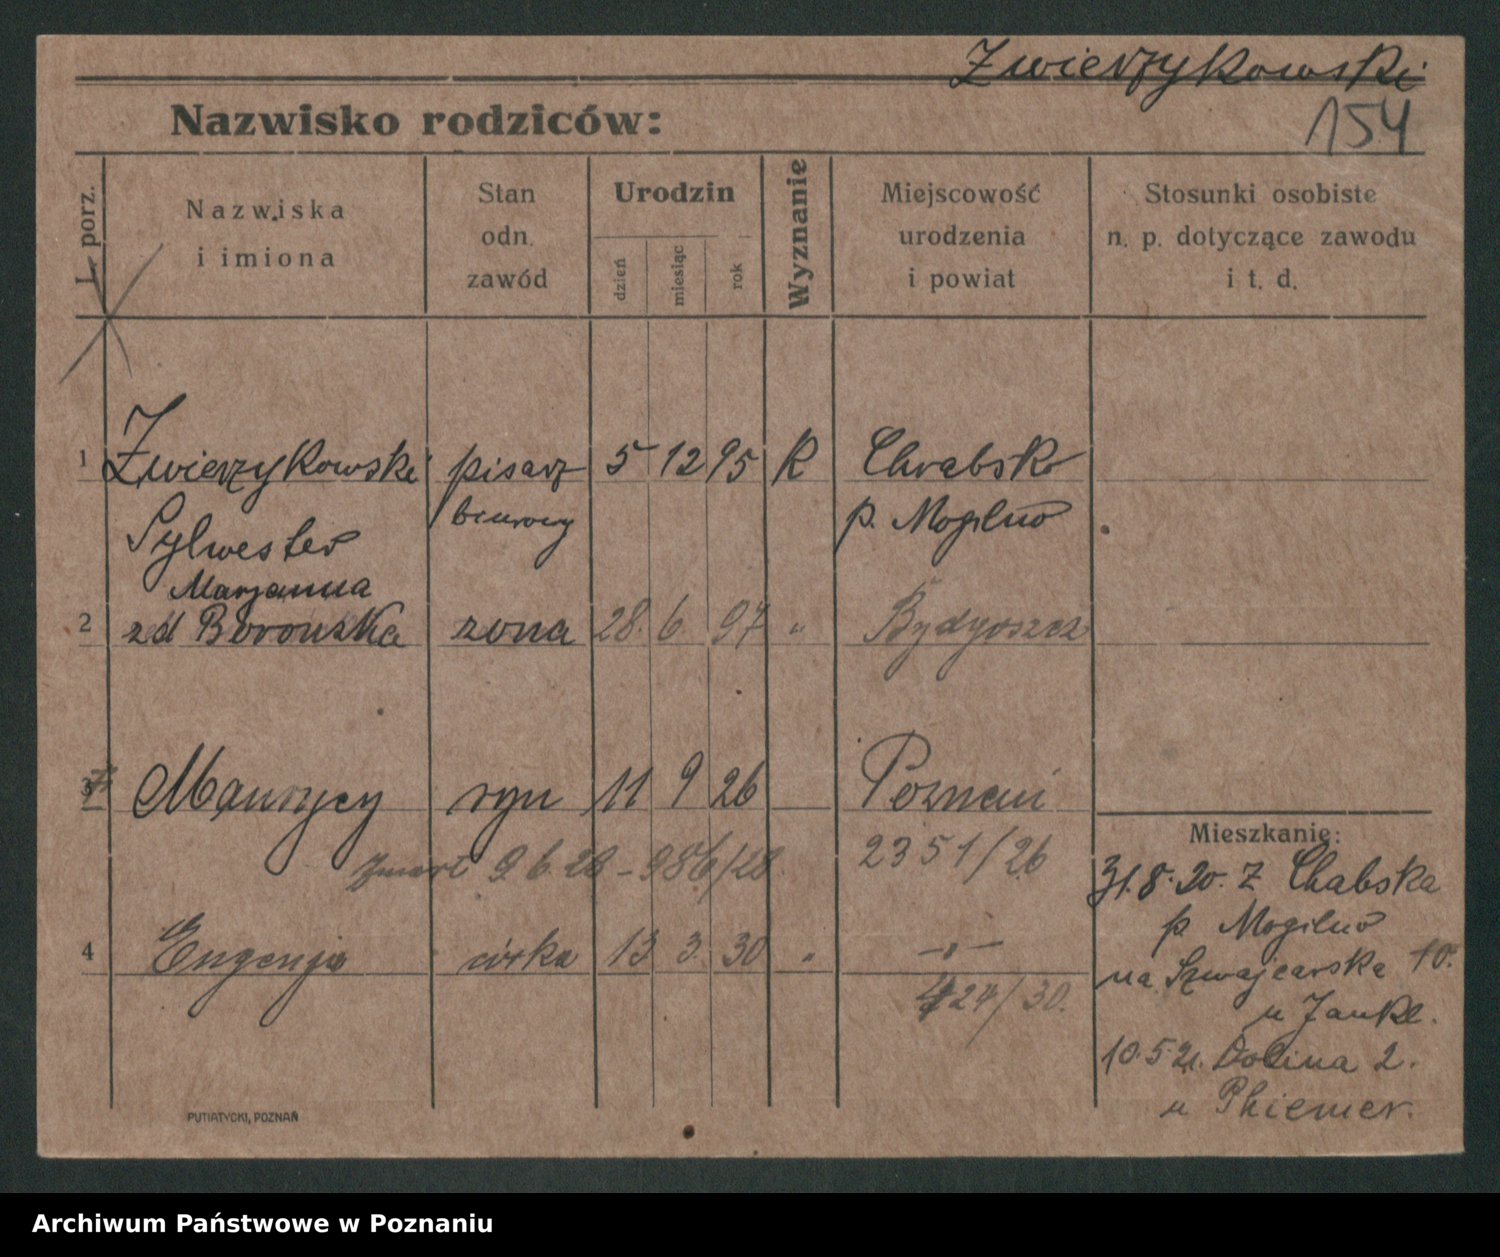 Zwierzykowski
Nazwisko rodziców:
154
L. porz.
Nazwiska
i imiona
Stan
odn.
zawód
Urodzin
dzień
miesiąc
rok
Wyznanie
Miejscowość
urodzenia
i powiat
Stosunki osobiste
n. p. dotyczące zawodu
i t. d.
1 Zwierzykowski pisarz 5 12 95 K Chrabsko
biurowy p. Mogilno
Sylwester
Maryanna
2 zd Borowska zona 28. 6. 97 " Bydgoszcz
3 Maurycy syn 11 9 26 Poznań
zmarł 9 6 28 - 986/28. 2351/26
4 Eugenja córka 13 3. 30 " -"-
424/30.
Mieszkanie:
31.8.20. Z Chabska
p. Mogilno
na Szwajcarska 10.
u Jankl.
10.5 21. Dolina 2.
u Phiemer.
PUTIATYCKI, POZNAŃ
Archiwum Państwowe w Poznaniu